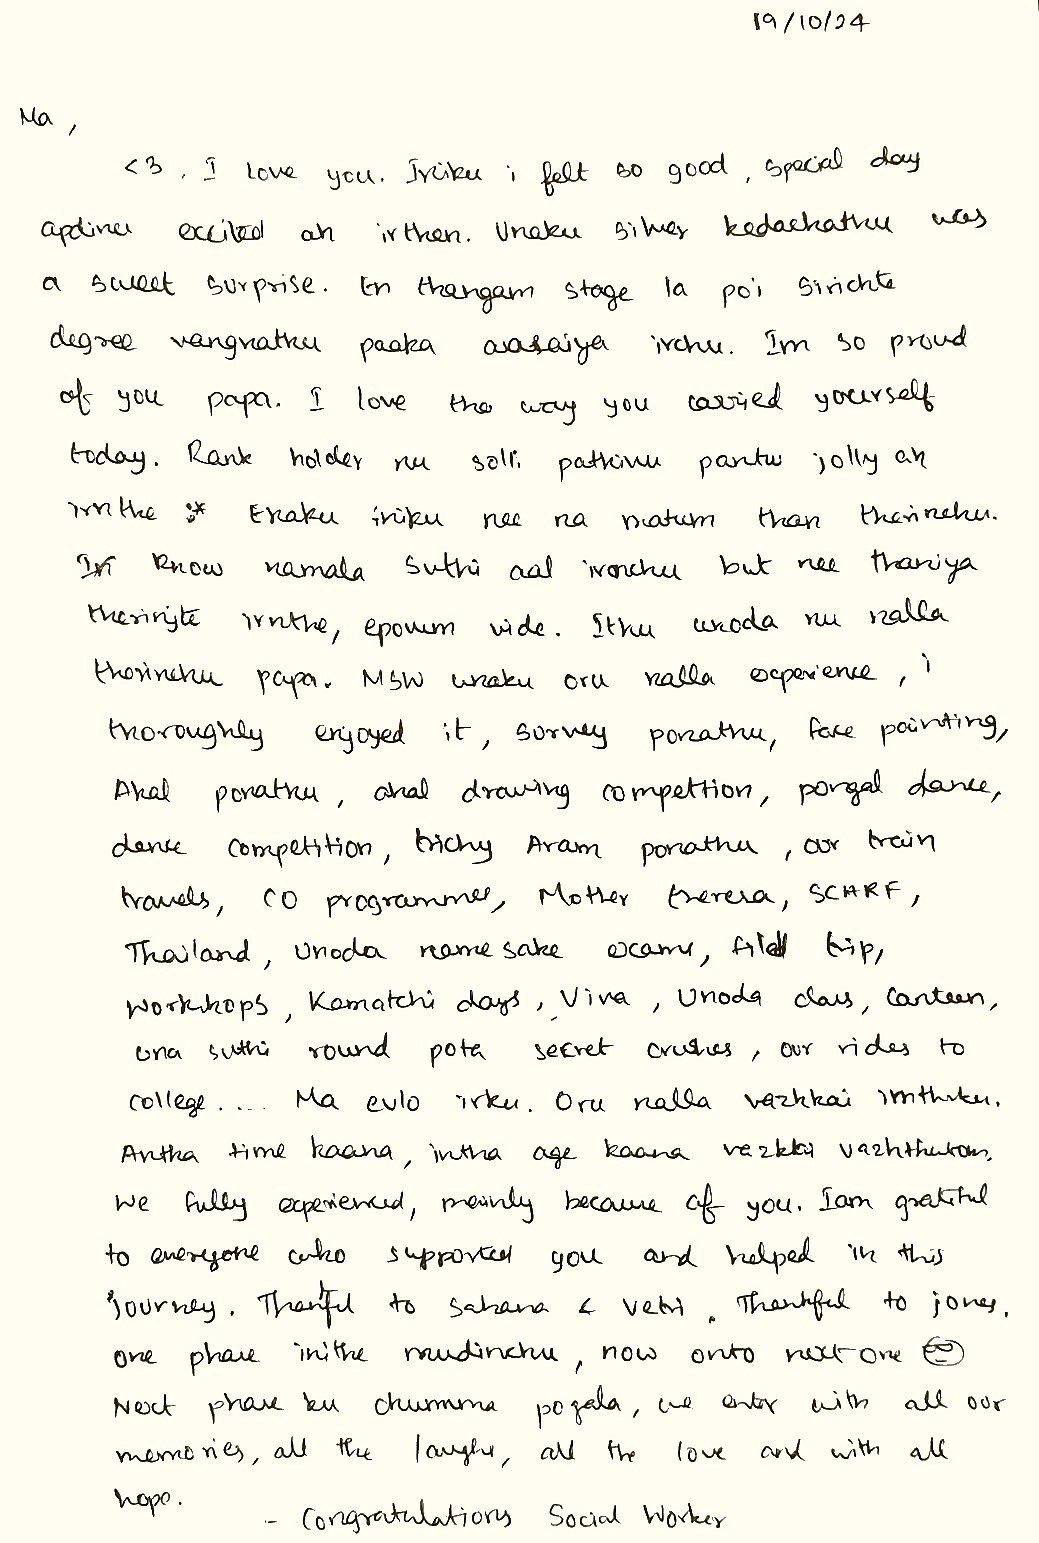 19/10/24
Ma,
<3. I love you. Iniku i felt so good, special day
apdinu excited ah irthen. Unaku silver kedachathu was
a sweet surprise. En thangam stage la poi sirichte
degree vangnathu paaka aasaiya irchu. Im so proud
of you papa. I love the way you carried yourself
today. Rank holder nu solli pathivu pantu jolly ah
irnthe Enaku iniku nee na matum than therinchu.
I know namala suthi aal irnchu but nee thaniya
therinjte irnthe, epovum vide. Ithu unoda nu nalla
therinchu papa. MSW unaku oru nalla experience, i
thoroughly enjoyed it, survey ponathu, face painting,
Ahal ponathu, ahal drawing compettion, pongal dance,
dance competition, trichy Aram ponathu, our train
travels, CO programmes, Mother theresa, SCARF,
Thailand, Unoda name sake exams, fild trip,
workhops, Kamatchi days, Viva, Unoda class, Canteen,
una suthi round pota secret crushes, our rides to
college.... Ma evlo irku. Oru nalla vazhkai irnthuku.
Antha time kaana, intha age kaana vazhkai vazhthutom.
We fully experienced, mainly because of you. Iam grateful
to everyone who supported you and helped in this
journey. Thankful to Sahana & Vetri. Thankful to jones.
one phase inithe mudinchu, now onto next one
Next phase ku chumma pogala, we enter with all our
memories, all the laughs, all the love and with all
hope.
- Congratulations Social Worker